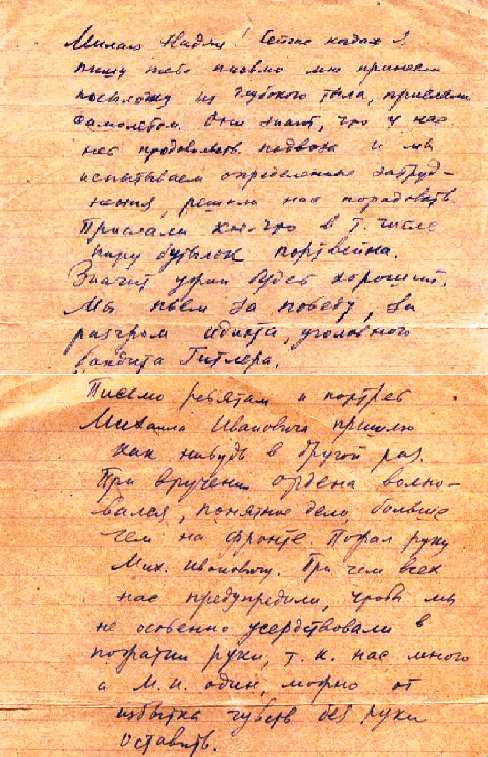 Милая Надя! Сейчас когда я
пишу тебе письмо мне принесли
посылочку из глубокого тыла, прислали
самолетом. Они знают, что у нас
нет продовольств. подвоза и мы
испытываем определенные затруд-
нения, решили нас порадовать.
Прислали кое-что в т. числе
пару бутылок портвейна.
Значит ужин будет хороший.
Мы пьем за победу, за
разгром идиота, уголовного
бандита Гитлера.
Письмо ребятам и портрет
Михаила Ивановича пришлю
как нибудь в другой раз.
При вручении ордена волно-
вался, понятное дело, больше
чем на фронте. Пожал руку
Мих. Ивановичу. При чем всех
нас предупредили, чтобы мы
не особенно усердствовали в
пожатии руки, т. к. нас много
а М. И. один, можно от
избытка чувств без руки
оставить.